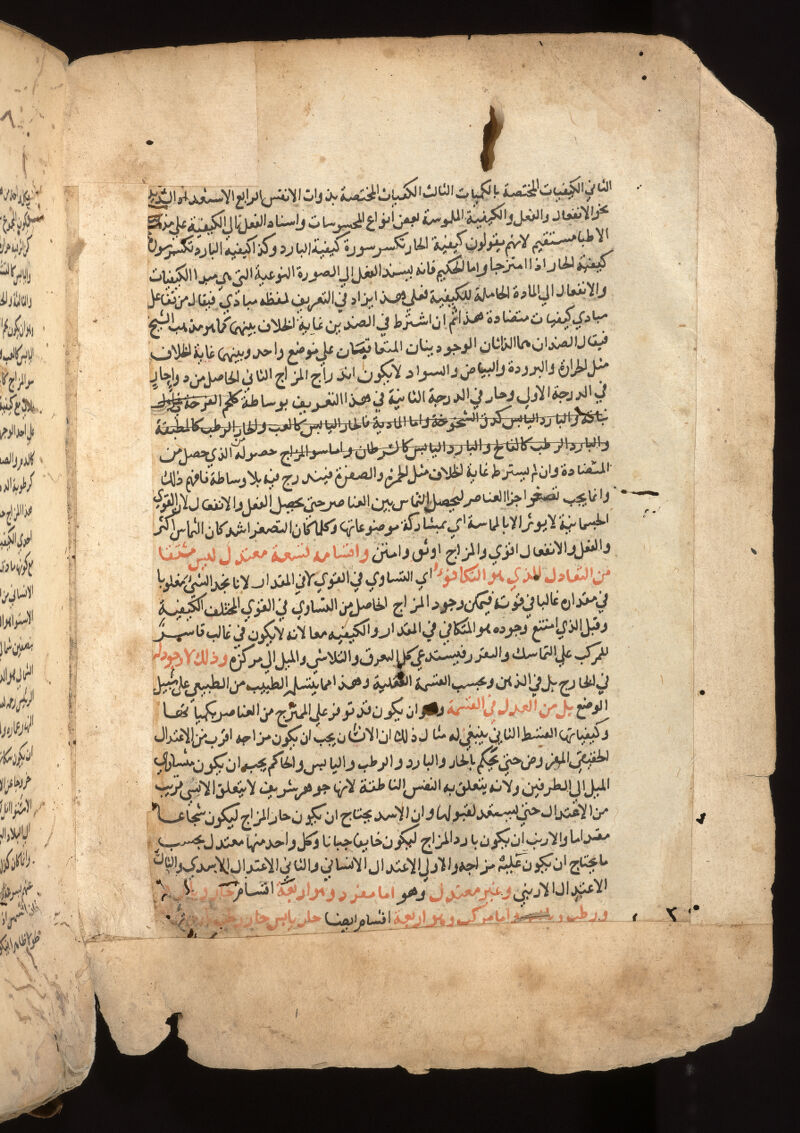 الثاني الكيفيات المختصة بالكميات الثالث الكيفيات المختصة بذوات الانفس الرابع الاستعداد
نحو الانفعال والفعل والكيفية الملموسة بعض انواع المحسوسات واسناد الفعل الى الكيفية على مذهب
الاطبا مستقيم لانهم يقولون كيفية الحار تكسر سورة كيفية البارد وكذا كيفية البارد تكسر سورة
كيفية الحار اذا امتزجا واما الحكيم فانه يسند الفعل الى الصورة النوعية التي هي مبدا الكيفيات
والانفعال الى المادة الحاملة للكيفية فعلى هذا يزاد في التعريف لفظه مبادي فيقال من تفاعل
مبادي كيفيات متضادة هذا ثم ان اشترط في الضدين غاية الخلاف بينهما كما هو مذهب الشيخ
فيقال الضدان هما الذاتان الوجوديتان المتعاقبتان على موضع واحد وبينهما غاية الخلاف
مثل الحرارة والبرودة والبياض والسواد لا يكون اندراج المزاج الثاني الحاصل من دواء حار
في الدرجة الاولى وحار في الدرجة الثانية في هذا التعريف بوساطة
والبارد اليابس واما المادية فالحار اليابس كالغب والحار الرطب كالمطبقة
والبارد الرطب كالفالج والبارد اليابس كالسرطان واما سو المزاج حصوله الذي حصل من
المتضادة وان لم يشترط غاية الخلاف مثل الحمرة والصفرة فيندرج فيه بلا وساطة فافهم ذلك
وانما يجب تصغر اجزا العناصر ليحصل التماس بين العناصر حتى يحصل الفعل والانفعال لان القوى
الجسمانية لا يوثر الا بالمماسة اي بمشاركة موضوعاتها وكلما كان التصغر اشد كان التماس اكثر
والفعل والانفعال اقوى والمزاج اوثق وامتن واقسامه تسعة معتدل ليس مشتقا
من التعادل الذي هو التكافؤ اي التساوي في القوى لا في المقدار لانا نجد الشئ مغلوبا
في مقداره غالبا في قوته فيمكن وجود المزاج الحاصل من التساوي في القوى المختلف الكيفية
وقيل الذي امتنع وجوده هو المتكافي في المقدار والكيفية معا لانه لا يكون في غالب قاسر
للمركب على التماسك والتقرر فيستدعي كل التفرق والتلاشي والميل الى مركزه وذلك لا وجود له
في الخارج بل في الذهن وبحسب القسمة العقلية وهذا مما يتسلم الطبيب من الطبيعي على سبيل
الوضع بل من العدل في القسمة وهو ان يكون قد توفر على الممتزج من العناصر بكمياتها
وكيفياتها القسط الذي ينبغي له مثال ذلك ان الانسان يجب ان يكون مزاجه اقرب من الاعتدال
الحقيقي المفروض حتى يحكم بالحار والبارد والرطب واليابس والحاكم يجب ان يكون متساوي
الميل الى الطرفين ولانه يتعلق به النفس الناطقة لانها جوهر شريف لا يتعلق الا بشئ قريب
من الاعتدال حتى يستعد لقبولها وان الاسد يحتاج ان يكون حار المزاج ليكون شجاعا
مقداما والارنب ان يكون بارد المزاج ليكون خايفا جبانا وكل واحد منها معتدل بحسب
ما يحتاج ان يكون عليه مزاجه والاول الاعتدال الانساني والثاني الاعتدال الاسدي والثالث
الاعتدال الارنبي وغير معتدل وهو اما مفرد وهو اربعة اقسام حار وبارد
ورطب و واما مركب وهو اربعة اقسام ايضا حار يابس حار رطب
٣